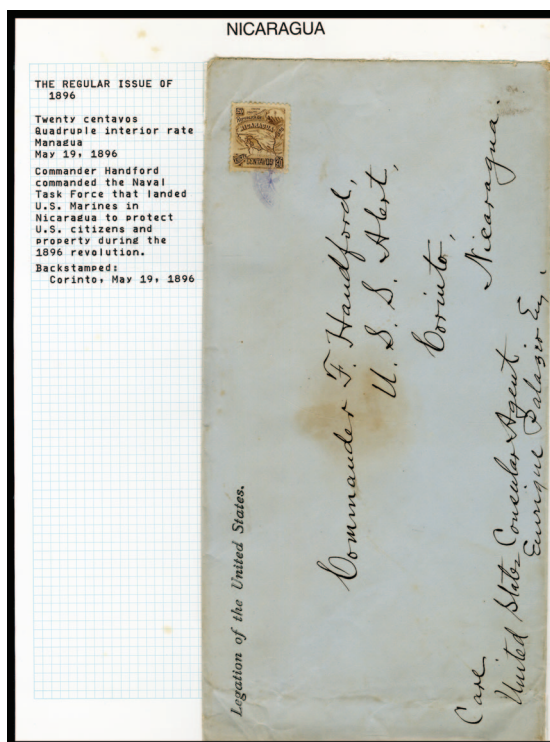 NICARAGUA
THE REGULAR ISSUE OF
1896
Twenty centavos
Quadruple interior rate
Managua
May 19, 1896
Commander Handford
commanded the Naval
Task Force that landed
U.S. Marines in
Nicaragua to protect
U.S. citizens and
property during the
1896 revolution.
Backstamped:
Corinto, May 19, 1896
NICARAGUA
CENTAVOS 20
Legation of the United States.
Commander F. Handford,
U. S. S. Alert,
Corinto,
Nicaragua.
Care
United States Consular Agent
Enrique Palazio Esq.